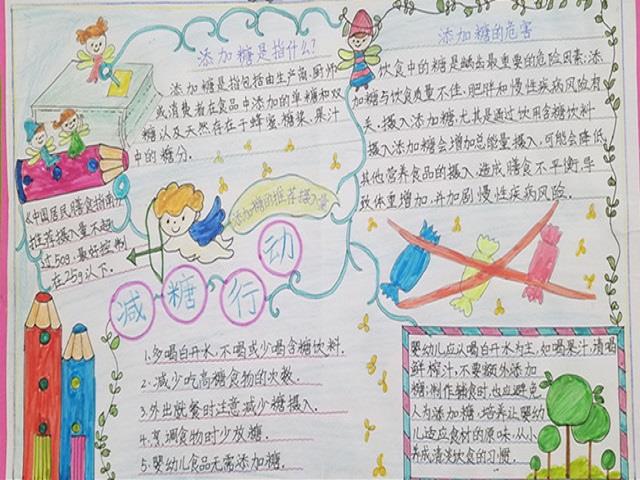 添加糖是指什么?
添加糖是指包括由生产商、厨师
或消费者在食品中添加的单糖和双
糖以及天然存在于蜂蜜、糖浆、果汁
中的糖分.
添加糖的危害
饮食中的糖是龋齿最重要的危险因素;添
加糖与饮食质量不佳、肥胖和慢性疾病风险有
关,摄入添加糖,尤其是通过饮用含糖饮料
摄入添加糖会增加总能量摄入,可能会降低
其他营养食品的摄入,造成膳食不平衡,导
致体重增加,并加剧慢性疾病风险.
《中国居民膳食指南》
推荐摄入量不超
过50g,最好控制
在25g以下.
添加糖的推荐摄入量
减糖行动
1.多喝白开水,不喝或少喝含糖饮料.
2.减少吃高糖食物的次数.
3.外出就餐时注意减少糖摄入.
4.烹调食物时少放糖.
5.婴幼儿食品无需添加糖.
婴幼儿应以喝白开水为主,如喝果汁,请喝
鲜榨汁,不要额外添加
糖;制作辅食时,也应避免
人为添加糖,培养让婴幼
儿适应食材的原味,从小
养成清淡饮食的习惯.